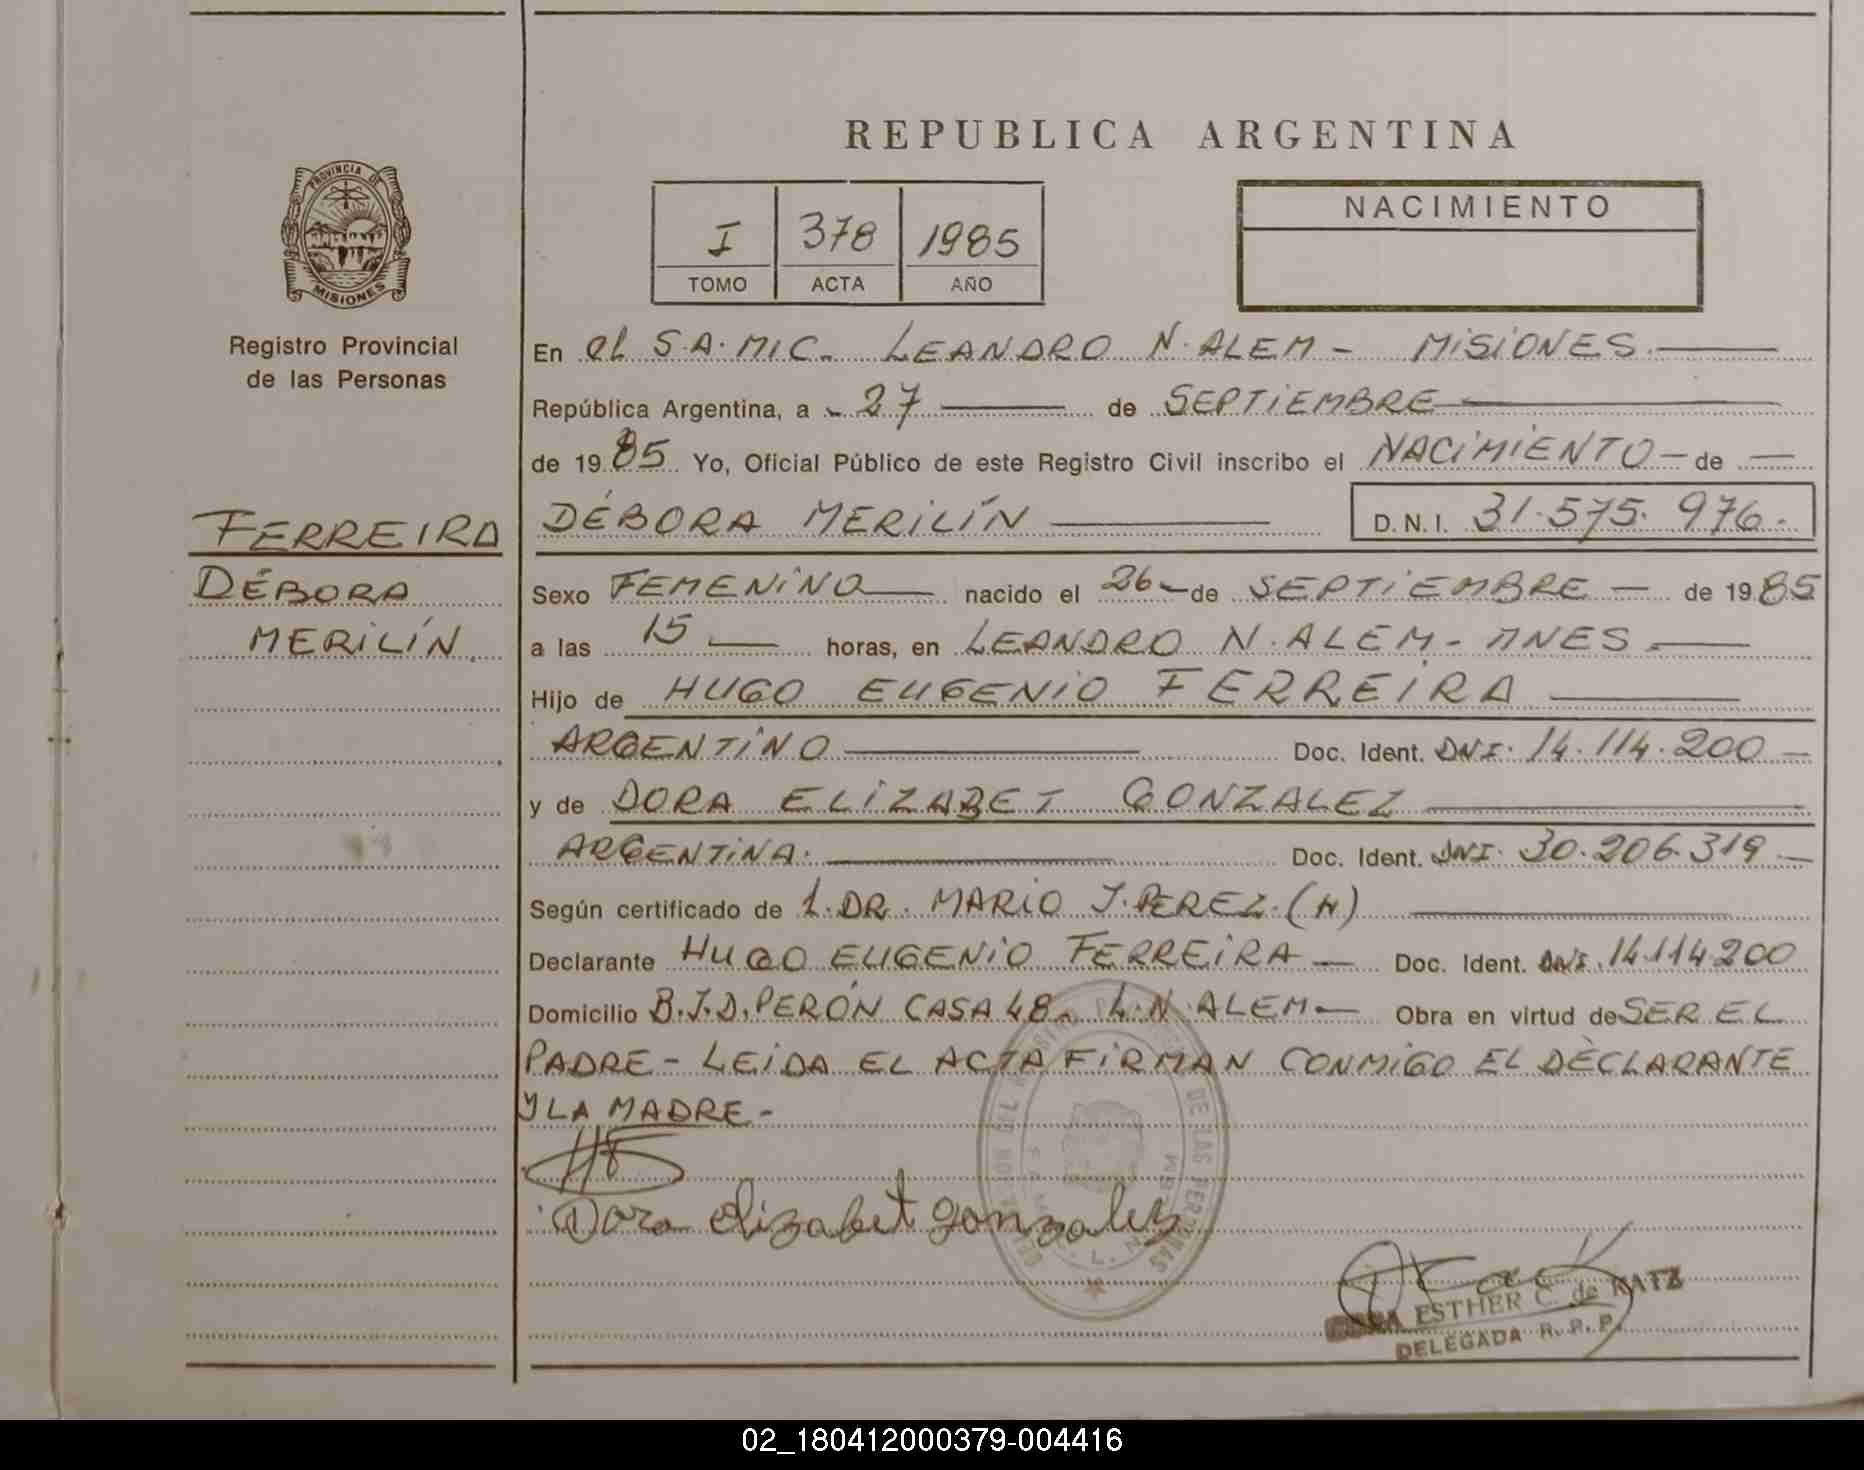 REPUBLICA ARGENTINA
PROVINCIA DE
MISIONES
Registro Provincial
de las Personas
I 378 1985
TOMO ACTA AÑO
NACIMIENTO
En el S.A.MIC. LEANDRO N. ALEM - MISIONES.
República Argentina, a 27 de SEPTIEMBRE
de 1985 Yo, Oficial Público de este Registro Civil inscribo el NACIMIENTO - de
DÉBORA MERILÍN D.N.I. 31.575.976.-
FERREIRA
DÉBORA
MERILÍN
Sexo FEMENINO nacido el 26 - de SEPTIEMBRE - de 1985
a las 15 horas, en LEANDRO N. ALEM - MNES
Hijo de HUGO EUGENIO FERREIRA
ARGENTINO Doc. Ident. DNI. 14.114.200 -
y de DORA ELIZABET GONZALEZ
ARGENTINA. Doc. Ident. DNI. 30.206.319 -
Según certificado de 1. DR. MARIO J. PEREZ. (H)
Declarante HUGO EUGENIO FERREIRA - Doc. Ident. DNI. 14.114.200
Domicilio B.J.D. PERÓN CASA 48. L.N. ALEM - Obra en virtud de SER EL
PADRE - LEIDA EL ACTA FIRMAN CONMIGO EL DECLARANTE
Y LA MADRE -
Dora Elizabet Gonzalez
ESTHER C. de KATZ
DELEGADA R.P.P.
02_180412000379-004416